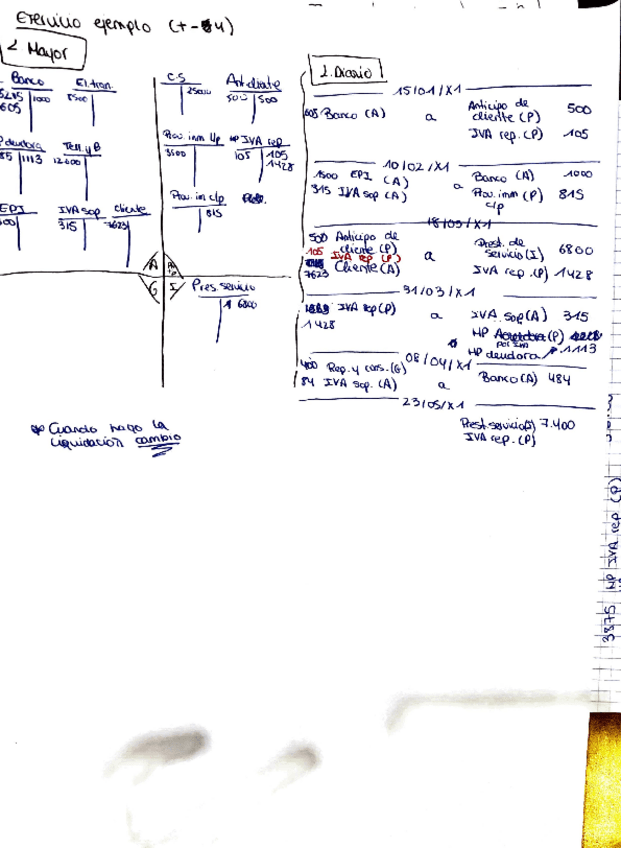 Ejercicio ejemplo
2 Mayor
Banco
El.tran.
605
1000
8500
deudora
Terr.yB
1113
12000
EPI
IVA sop
cliente
315
7623
C.S
Ant.cliente
25000
500
500
Prov. inm l/p
HP IVA rep
3500
105
105
1428
Prov. inm c/p
815
A
G
I
Pres. servicio
6800
* Cuando hago la
liquidación cambio
1. Diario
15/01/X1
605 Banco (A)
a
Anticipo de
cliente (P)
500
IVA rep. (P)
105
10/02/X1
1500 EPI (A)
315 IVA sop (A)
a
Banco (A)
1000
Prov. inm (P)
c/p
815
18/03/X1
500 Anticipo de
cliente (P)
105 IVA rep (P)
7623 Cliente (A)
a
Prest. de
servicio (I)
6800
IVA rep. (P)
1428
31/03/X1
IVA rep (P)
1428
a
IVA sop (A)
315
HP (P)
por IVA
HP deudora
1113
08/04/X1
400 Rep. y cons. (G)
84 IVA sop. (A)
a
Banco (A) 484
23/05/X1
Prest. servicio (I) 7.400
IVA rep. (P)
3875 HP IVA rep (P)